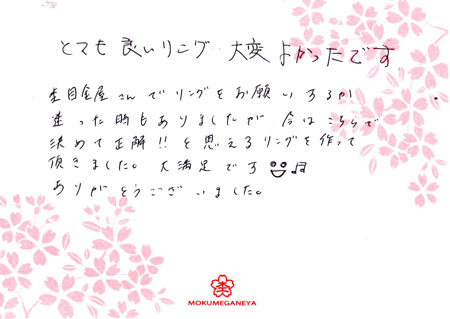 とても良いリング 大変よかったです
杢目金屋さんでリングをお願いするか
迷った時もありましたが 今はこちらで
決めて正解!! と思えるリングを作って
頂きました。大満足です
ありがとうございました。
MOKUMEGANEYA